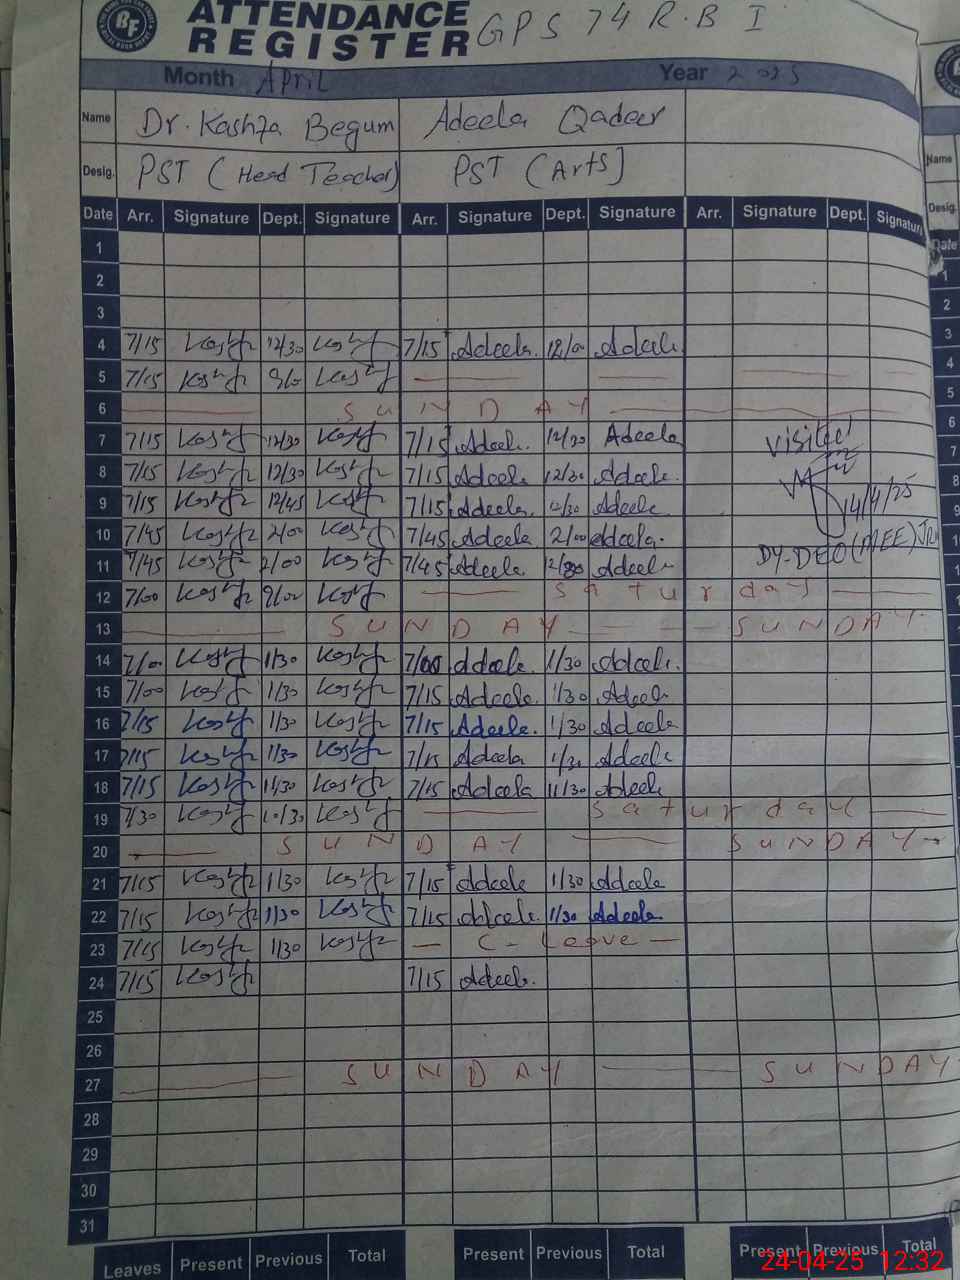 ATTENDANCE
REGISTER GPS 74 R.B I
Month April Year 2025
Name Dr. Kashfa Begum Adeela Qadeer
Desig. PST (Head Teacher) PST (Arts)
Date Arr. Signature Dept. Signature Arr. Signature Dept. Signature Arr. Signature Dept. Signature
1
2
3
4 7/15 12/30 7/15 Adeela. Adeela
5 7/15
6 SUNDAY
7 7/15 12/30 7/15 Adeela. 12/30 Adeela Visited
8 7/15 12/30 7/15 Adeela 12/30 Adeela.
9 7/15 12/45 7/15 Adeela. 12/30 Adeela 14/4/25
10 7/45 2/00 7/45 Adeela 2/00 Adeela. DY-DEO (MEE) JRW
11 7/45 2/00 7/45 Adeela Adeela
12 7/00 9/00 Saturday
13 SUNDAY SUNDAY
14 7/00 1/30 7/00 Adeela. 1/30 Adeela.
15 7/00 1/30 7/15 Adeela. 1/30 Adeela
16 7/15 1/30 7/15 Adeela. 1/30 Adeela
17 7/15 1/30 7/15 Adeela 1/30 Adeela
18 7/15 11/30 7/15 Adeela 11/30 Adeela
19 7/30 10/30 Saturday
20 SUNDAY SUNDAY
21 7/15 1/30 7/15 Adeela 1/30 Adeela
22 7/15 1/30 7/15 Adeela. 1/30 Adeela
23 7/15 1/30 C-Leave
24 7/15 7/15 Adeela.
25
26
27 SUNDAY SUNDAY
28
29
30
31
Leaves Present Previous Total Present Previous Total Present Previous Total
24-04-25 12:32